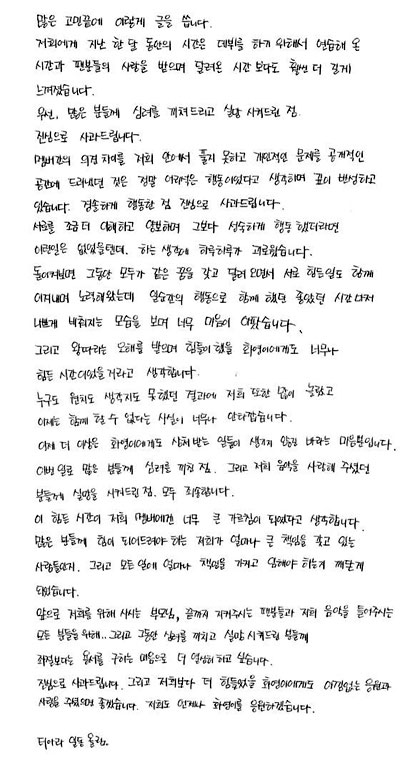 많은 고민끝에 이렇게 글을 씁니다.
저희에게 지난 한 달 동안의 시간은 데뷔를 하기 위해서 연습해 온
시간과 팬분들의 사랑을 받으며 달려온 시간 보다도 훨씬 더 길게
느껴졌습니다.
우선, 많은 분들께 심려를 끼쳐드리고 실망 시켜드린 점
진심으로 사과드립니다.
멤버간의 의견 차이를 저희 안에서 풀지 못하고 개인적인 문제를 공개적인
공간에 드러냈던 것은 정말 어리석은 행동이었다고 생각하며 깊이 반성하고
있습니다. 경솔하게 행동한 점 진심으로 사과드립니다.
서로를 조금 더 이해하고 양보하며 그보다 성숙하게 행동 했더라면
이런일은 없었을텐데.. 하는 생각에 하루하루가 괴로웠습니다.
돌이켜보면 그동안 모두가 같은 꿈을 갖고 달려 오면서 서로 힘든일도 함께
이겨내며 노력해왔는데 일순간의 행동으로 함께 했던 좋았던 시간마저
나쁘게 비춰지는 모습을 보며 너무 마음이 아팠습니다.
그리고 왕따라는 오해를 받으며 힘들어했을 화영이에게도 너무나
힘든 시간이었을거라고 생각합니다.
누구도 원치도 생각지도 못했던 결과에 저희 또한 많이 놀랐고
이제는 함께 할 수 없다는 사실이 너무나 안타깝습니다.
이제 더 이상은 화영이에게도 상처 받는 일들이 생기지 않길 바라는 마음뿐입니다.
이번 일로 많은 분들께 심려를 끼친 점. 그리고 저희 음악을 사랑해 주셨던
분들께 실망을 시켜드린 점. 모두 죄송합니다.
이 힘든 시간이 저희 멤버에겐 너무 큰 가르침이 되었다고 생각합니다.
많은 분들께 힘이 되어드려야 하는 저희가 얼마나 큰 책임을 갖고 있는
사람들인지. 그리고 모든 일에 얼마나 책임을 가지고 임해야 하는지 깨닫게
되었습니다.
앞으로 저희를 위해 사시는 부모님, 끝까지 지켜주시는 팬분들과 저희 음악을 들어주시는
모든 분들을 위해.. 그리고 그동안 심려를 끼치고 실망 시켜드린 분들께
좌절보다는 용서를 구하는 마음으로 더 열심히 하고 싶습니다.
진심으로 사과드립니다. 그리고 저희보다 더 힘들었을 화영이에게도 아낌없는 응원과
사랑을 주셨으면 좋겠습니다. 저희도 언제나 화영이를 응원하겠습니다.
티아라 일동 올림.